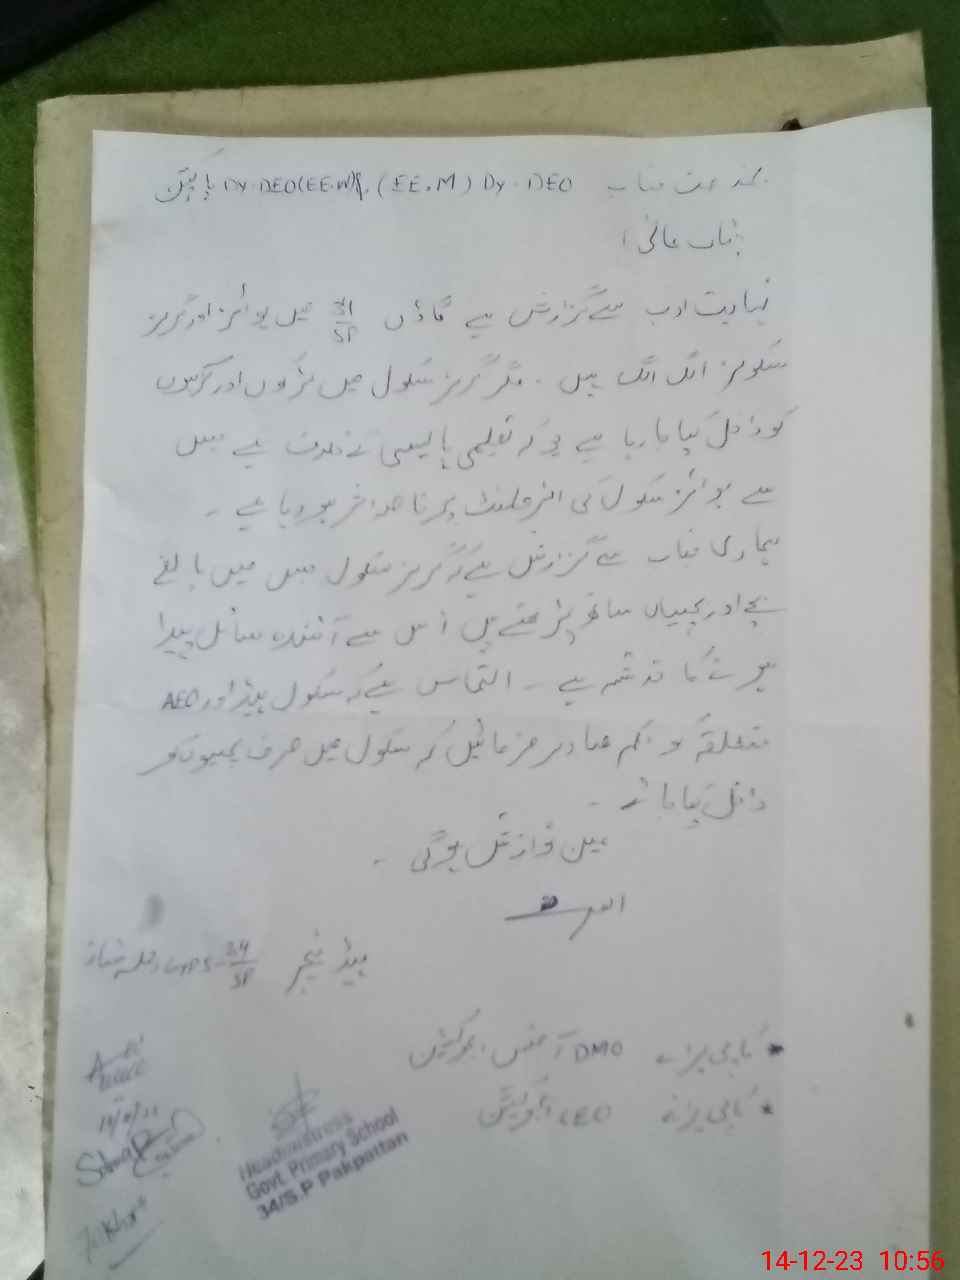 بخدمت جناب Dy. DEO (EE.M) ، Dy. DEO(EE.W) پاکپتن
جناب عالی !
نہایت ادب سے گزارش ہے گاؤں 34/SP میں بوائز اور گرلز
سکولز الگ الگ ہیں ۔ مگر گرلز سکول میں لڑکوں اور لڑکیوں
کو داخل کیا جا رہا ہے جو کہ تعلیمی پالیسی کے خلاف ہے جس
سے بوائز سکول کی انرولمنٹ پر خاصہ اثر ہو رہا ہے ۔
ہماری جناب سے گزارش ہے کہ گرلز سکول جس میں بالغ
بچے اور بچیاں ساتھ پڑھتے ہیں اس سے آئندہ مسائل پیدا
ہونے کا خدشہ ہے ۔ التماس ہے کہ سکول ہیڈ اور AEO
متعلقہ کو حکم صادر فرمائیں کہ سکول میں صرف بچیوں کو
داخل کیا جائے ۔
عین نوازش ہوگی ۔
العارض
ہیڈ ٹیچر GPS-34/SP
* کاپی برائے DMO آفس پاکپتن
* کاپی برائے CEO پاکپتن
Headmistress
Govt. Primary School
34/S.P Pakpattan
14-12-23 10:56